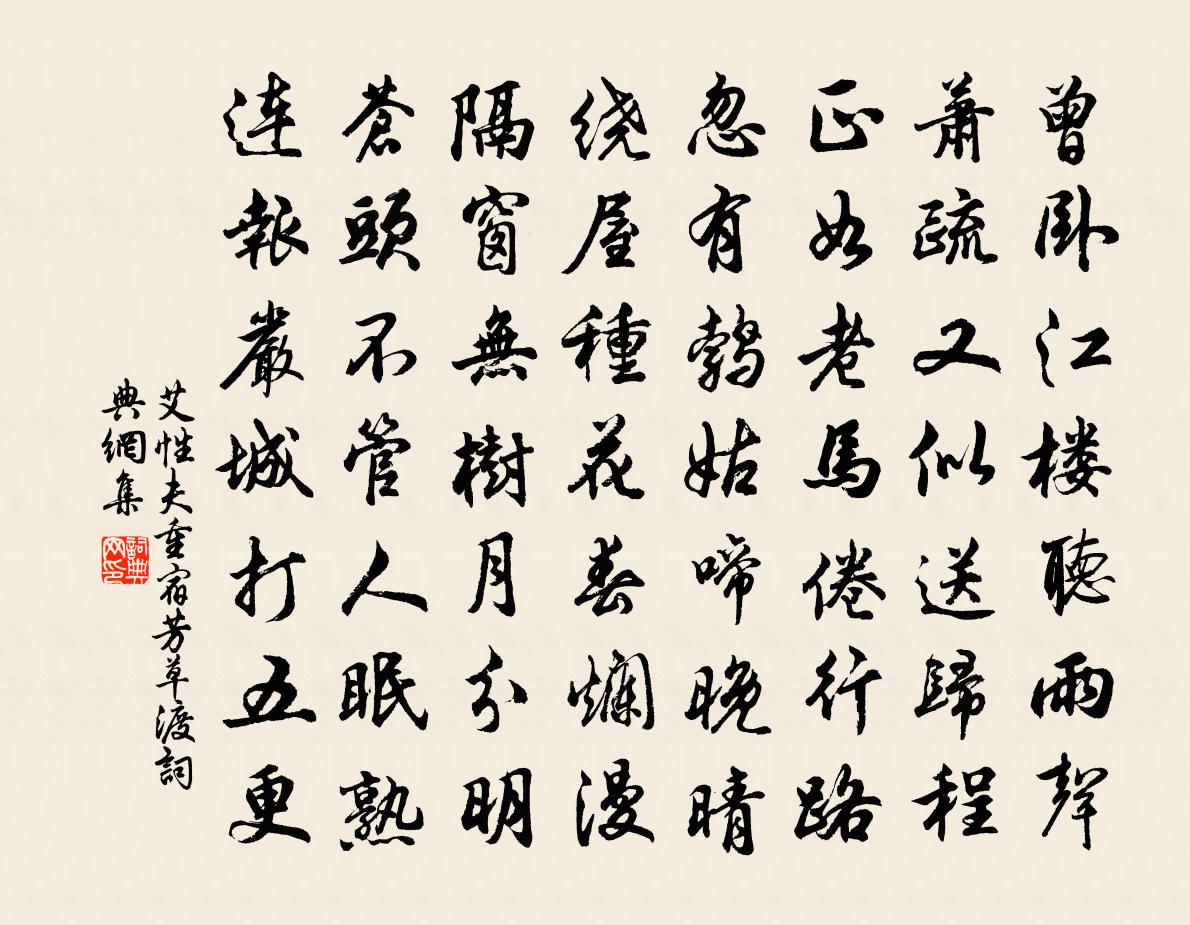 曾卧江楼聽雨聲
蕭疏又似送歸程
正如老馬倦行路
忽有鹁姑啼晚晴
绕屋種花春爛漫
隔窗無樹月分明
蒼頭不管人眠熟
連報嚴城打五更
艾性夫重宿芳草渡詞
典網集
詞典
网印